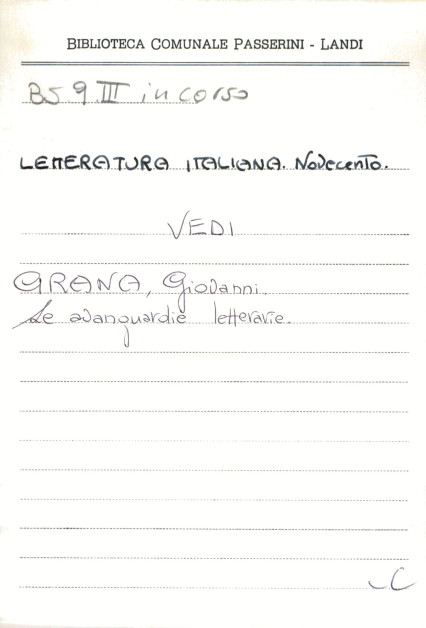 BIBLIOTECA COMUNALE PASSERINI - LANDI
BS 9 III in corso
LETTERATURA ITALIANA. Novecento.
VEDI
GRANA, Giovanni.
Le avanguardie letterarie.